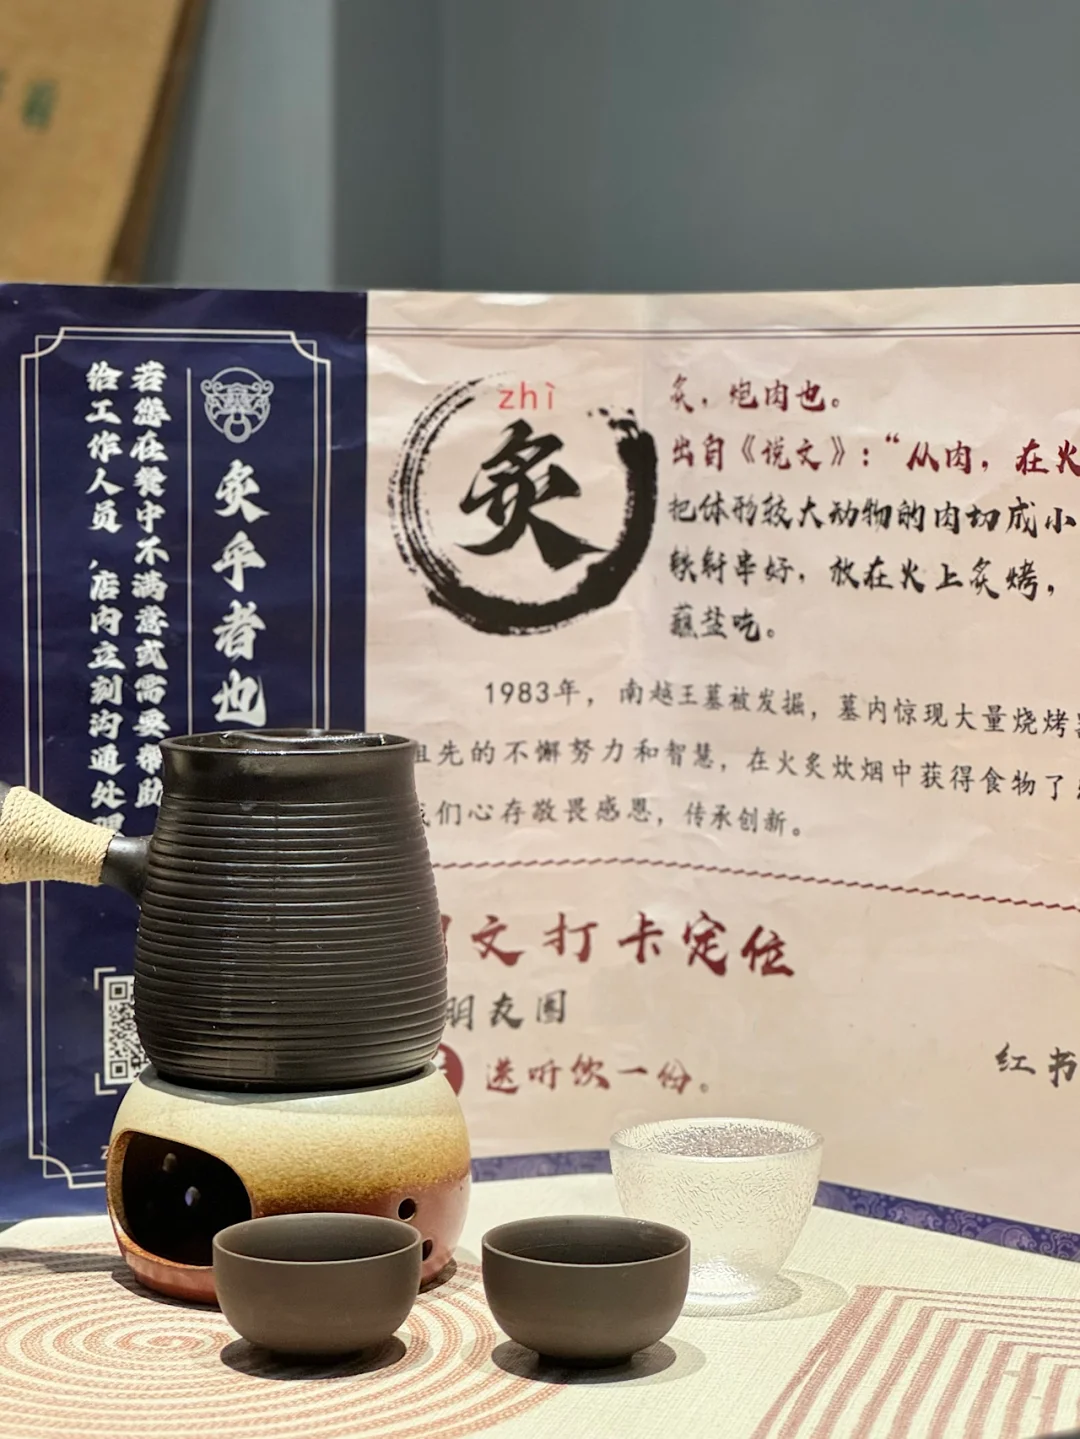 炙乎者也
若您在餐中不满意或需要帮助
给工作人员,店内立刻沟通处理
zhì
炙
炙,炮肉也。
出自《说文》:“从肉,在火
把体形较大动物的肉切成小
铁钎串好,放在火上炙烤,
蘸盐吃。
1983年,南越王墓被发掘,墓内惊现大量烧烤器
祖先的不懈努力和智慧,在火炙炊烟中获得食物了
我们心存敬畏感恩,传承创新。
文打卡定位
朋友圈
红书
送听饮一份。